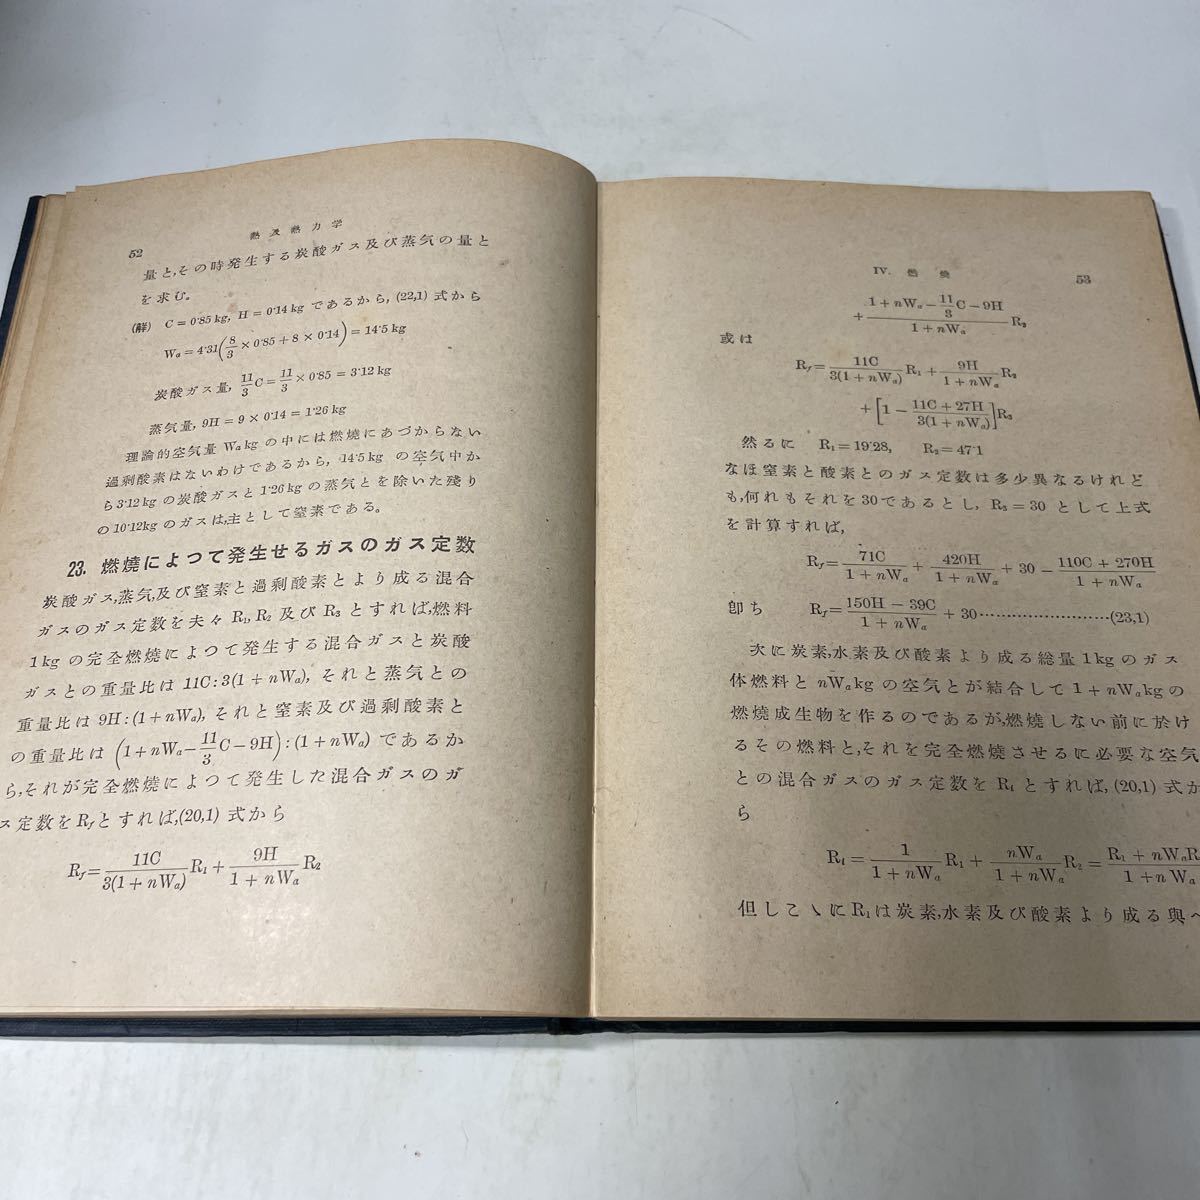 52
熱及熱力学
量と,その時発生する炭酸ガス及び蒸気の量と
を求む。
(解) C=0·85kg, H=0·14kg であるから, (22,1) 式から
Wa=4·31(8/3×0·85+8×0·14)=14·5kg
炭酸ガス量, 11/3C=11/3×0·85=3·12kg
蒸気量, 9H=9×0·14=1·26kg
理論的空気量 Wakg の中には燃焼にあづからない
過剰酸素はないわけであるから, 14·5kg の空気中か
ら3·12kgの炭酸ガスと1·26kgの蒸気とを除いた残り
の10·12kgのガスは,主として窒素である。
23. 燃焼によつて発生せるガスのガス定数
炭酸ガス,蒸気,及び窒素と過剰酸素とより成る混合
ガスのガス定数を夫々 R1, R2 及び R3 とすれば,燃料
1kg の完全燃焼によつて発生する混合ガスと炭酸
ガスとの重量比は 11C:3(1+nWa), それと蒸気との
重量比は 9H:(1+nWa), それと窒素及び過剰酸素と
の重量比は (1+nWa−11/3C−9H):(1+nWa) であるか
ら,それが完全燃焼によつて発生した混合ガスのガ
ス定数を Rf とすれば,(20,1) 式から
Rf=11C/3(1+nWa)R1+9H/1+nWaR2
IV. 燃焼
53
+1+nWa−11/3C−9H/1+nWaR3
或は
Rf=11C/3(1+nWa)R1+9H/1+nWaR2
+[1−11C+27H/3(1+nWa)]R3
然るに R1=19·28, R2=47·1
なほ窒素と酸素とのガス定数は多少異なるけれど
も,何れもそれを30であるとし, R3=30 として上式
を計算すれば,
Rf=71C/1+nWa+420H/1+nWa+30−110C+270H/1+nWa
卽ち Rf=150H−39C/1+nWa+30……………………(23,1)
次に炭素,水素及び酸素より成る総量1kgのガス
体燃料と nWakg の空気とが結合して 1+nWakg の
燃焼成生物を作るのであるが,燃焼しない前に於け
るその燃料と,それを完全燃焼させるに必要な空気
との混合ガスのガス定数を Rt とすれば, (20,1) 式か
ら
Rt=1/1+nWaR1+nWa/1+nWaR2=R1+nWaR/1+nWa
但しこゝに R1 は炭素,水素及び酸素より成る與へ